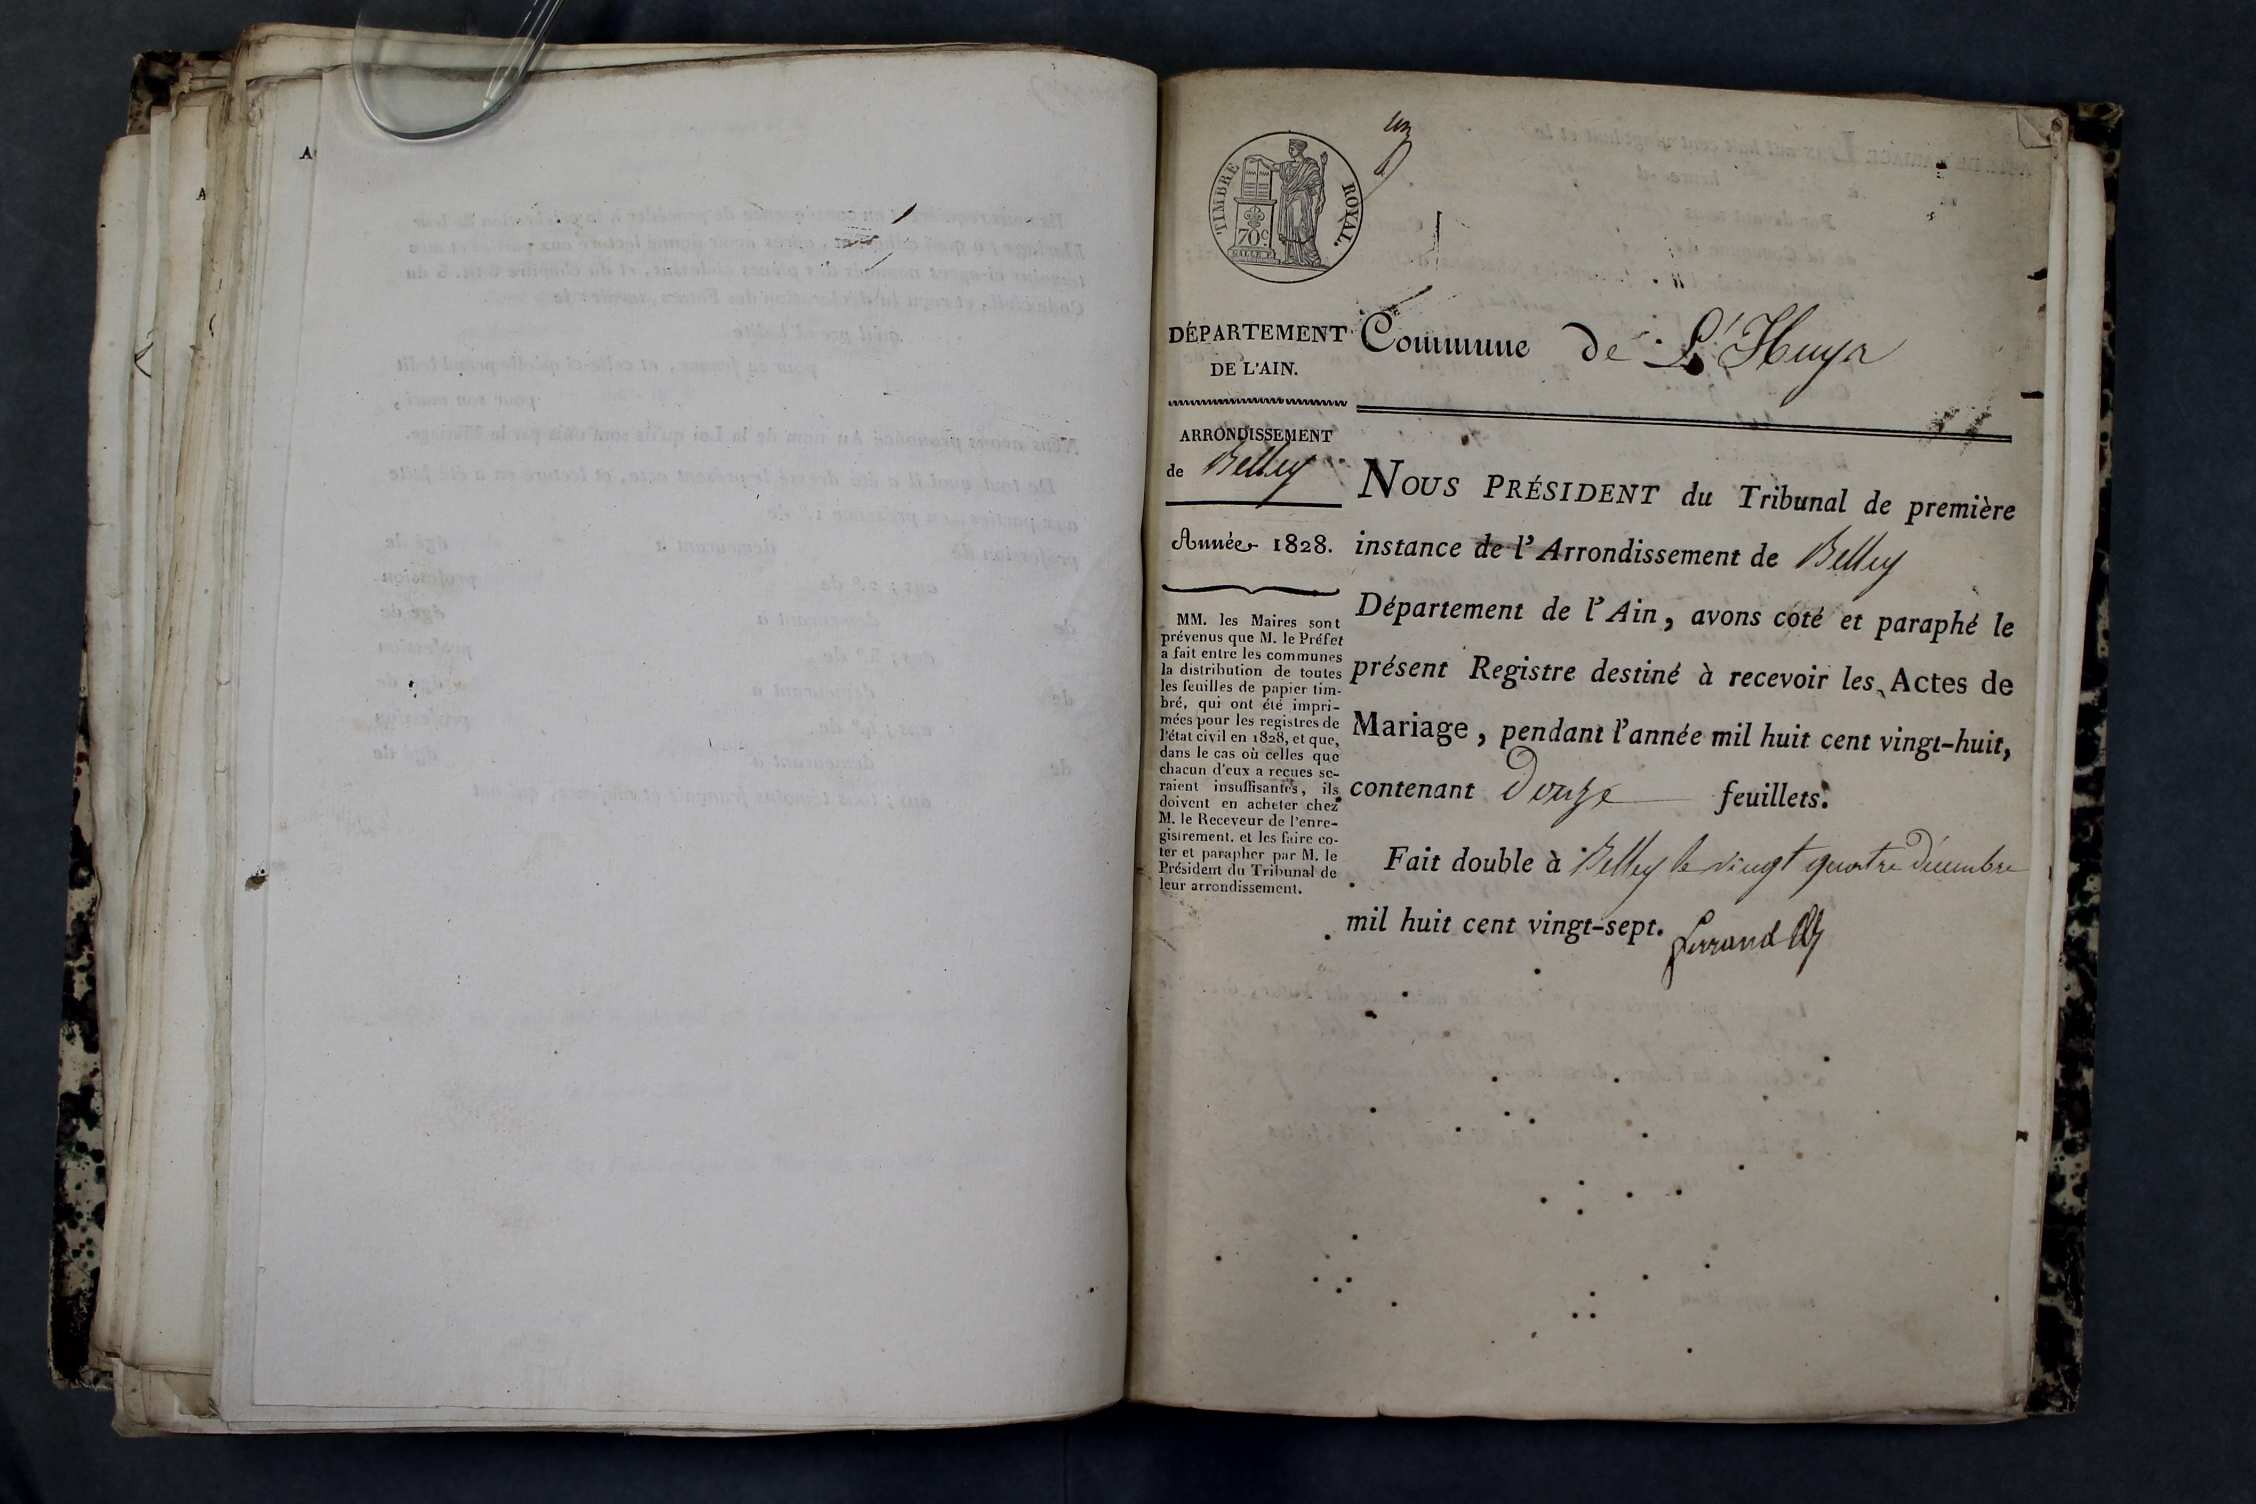 un
TIMBRE ROYAL.
70 c.
DÉPARTEMENT
DE L'AIN.
Commune de L'Huya
ARRONDISSEMENT
de Belley
Année 1828.
MM. les Maires sont
prévenus que M. le Préfet
a fait entre les communes
la distribution de toutes
les feuilles de papier tim-
bré, qui ont été impri-
mées pour les registres de
l'état civil en 1828, et que,
dans le cas où celles que
chacun d'eux a reçues se-
raient insuffisantes, ils
doivent en acheter chez
M. le Receveur de l'enre-
gistrement, et les faire co-
ter et parapher par M. le
Président du Tribunal de
leur arrondissement.
NOUS PRÉSIDENT du Tribunal de première
instance de l'Arrondissement de Belley
Département de l'Ain, avons coté et paraphé le
présent Registre destiné à recevoir les Actes de
Mariage, pendant l'année mil huit cent vingt-huit,
contenant Douze feuillets.
Fait double à Belley le vingt quatre décembre
mil huit cent vingt-sept.